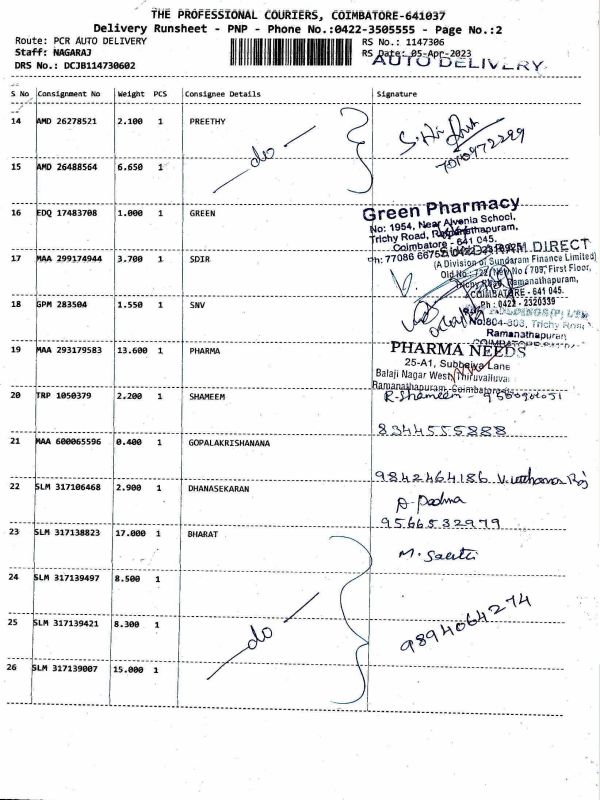 THE PROFESSIONAL COURIERS, COIMBATORE-641037
Delivery Runsheet - PNP - Phone No.:0422-3505555 - Page No.:2
Route: PCR AUTO DELIVERY
RS No.: 1147306
Staff: NAGARAJ
RS Date: 05-Apr-2023
DRS No.: DCJB114730602
AUTO DELIVERY
S No Consignment No Weight PCS Consignee Details Signature
14 AMD 26278521 2.100 1 PREETHY
7010972299
do
15 AMD 26488564 6.650 1
16 EDQ 17483708 1.000 1 GREEN
Green Pharmacy
No: 1954, Near Alvenia School,
Trichy Road, Ramanathapuram,
Coimbatore - 641 045.
17 MAA 299174944 3.700 1 SDIR
SUNDARAM DIRECT
(A Division of Sundaram Finance Limited)
First Floor,
Ramanathapuram,
COIMBATORE - 641 045.
Ph : 0422 - 2320339
18 GPM 283504 1.550 1 SNV
No:804-803, Trichy Road
Ramanathapuram
COIMBATORE
19 MAA 293179583 13.600 1 PHARMA
PHARMA NEEDS
25-A1, Subbaiya Lane
Balaji Nagar West, Thiruvalluvar
Ramanathapuram, Coimbatore
20 TRP 1050379 2.200 1 SHAMEEM
R. Shameem -
8344555888
21 MAA 600065596 0.400 1 GOPALAKRISHANANA
9842464186
22 SLM 317106468 2.900 1 DHANASEKARAN
A. Padma
9566532979
23 SLM 317138823 17.000 1 BHARAT
M. Sakthi
24 SLM 317139497 8.500 1
25 SLM 317139421 8.300 1
do
9894064274
26 SLM 317139007 15.000 1